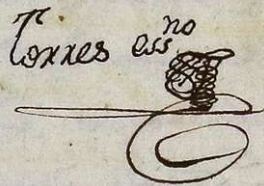 Torres essno